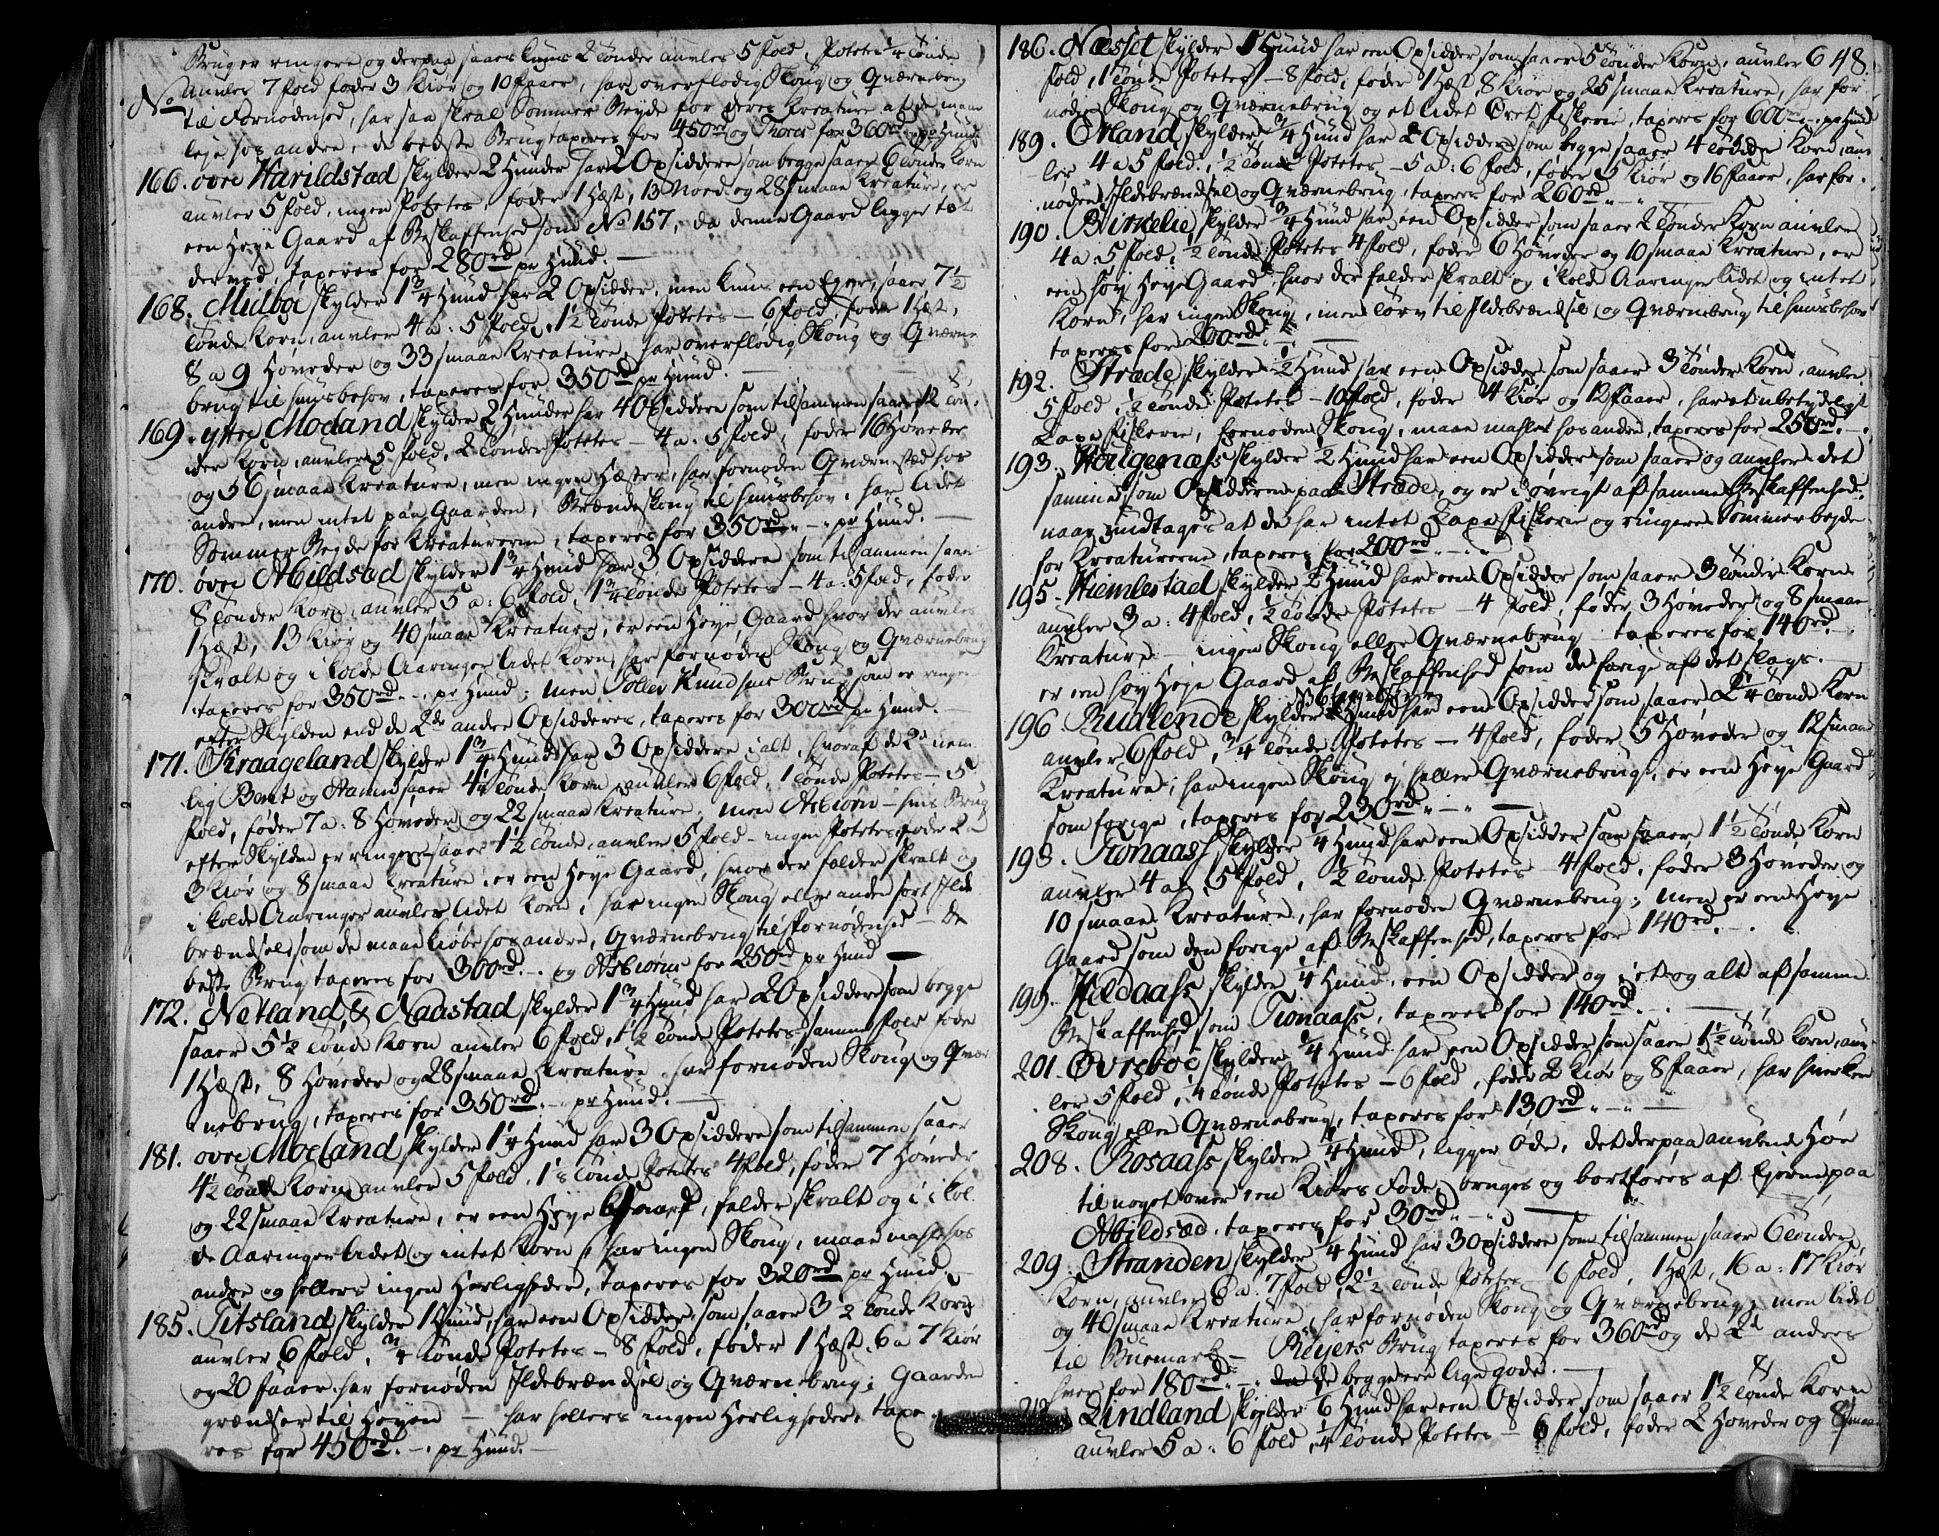 Brug er ringere og derpaa saaes kuns 2 tønder auvler 5 fold, Potetes 1/4 tønde
No auvler 7 fold føder 3 Kiør og 10 faaer, har overflødig Skoug og Qværnebrug
til Fornødenhed, har saa skral Sommer Beyde for deres Kreature at de maae
leje hos andre, de bedste Brug taxeres for 450rd og Thores for 360rd pr Hund.
166. øvre Harildstad skylder 2 Hunder har 2 Opsiddere som begge saaer 6 tønder Korn
auvler 5 fold, ingen Potetes, føder 1 Hæst, 13 Nød og 28 smaae Kreature, er
een Heye Gaard af Beskaffenhed som No 157, da denne Gaard ligger tæt
derved, taxeres for 280rd pr Hund.
168. Midbøe skylder 1 3/4 Hund har 2 Opsidder, men kuns een Eyer, saaer 7 1/2
tønde Korn, auvler 4 a: 5 fold, 1 1/2 tønde Potetes - 6 fold, føder 1 Hæst,
8 a 9 Høveder og 33 smaae Kreature, har overflødig Skoug og Qværne
brug til huusbehov, taxeres for 350rd pr Hund.
169. ytre Moeland skylder 2 Hunder har 4 Opsiddere som tilsammen saaer 12 tøn-
der Korn, auvler 5 fold, 2 tønder Potetes - 4 a: 5 fold, føder 16 Høveder
og 56 smaae Kreature, men ingen Hæster, har fornøden Qværnestæd hos
andre, men intet paa Gaarden, Brændeskoug til huusbehov, har lidet
Sommer Beyde for Kreaturerne, taxeres for 350rd - pr Hund.
170. øvre Abildsød skylder 1 3/4 Hund har 3 Opsiddere som tilsammen saaer
8 tønder Korn, auvler 5 a: 6 fold, 1 3/4 tønde Potetes - 4 a: 5 fold, føder
1 Hæst, 13 Kiør og 40 smaae Kreature, er een Heye Gaard hvor der auvles
skralt og i kolde Aaringer lidet Korn, har fornøden Skoug og Qværnebrug
taxeres for 350rd - pr Hund; men Tollev Knudsens Brug som er ringere
efter Skylden end de 2de andre Opsidderes, taxeres for 300rd pr Hund.
171. Kraageland skylder 1 3/4 Hund har 3 Opsiddere i alt, hvoraf de 2de nem-
lig Bent og Aanen saaer 4 1/2 tønde Korn, auvler 6 fold, 1 tønde Potetes - 5
fold, føder 7 a: 8 Høveder og 22 smaae Kreature, men Asbiørn - hvis Brug
efter Skylden er ringere saaer 1 1/2 tønde, auvler 5 fold - ingen Potetes, føder 2 a
3 Kiør og 8 smaae Kreature, er een Heye Gaard, hvor der falder skralt og
i kolde Aaringer auvles lidet Korn, har ingen Skoug eller anden sort Ilde
brændsel som de maae kiøbe hos andre, Qværnebrug til Fornødenhed - de
beste Brug taxeres for 300rd - og Asbiørns for 250rd pr Hund -
172. Netland & Naastad skylder 1 3/4 Hund har 2 Opsiddere som begge
saaer 5 1/2 tønde Korn auvler 6 fold, 1 1/2 tønde Potetes samme fold føde
1 Hæst, 8 Høveder og 28 smaae Kreature har fornøden Skoug og Qvær
nebrug, taxeres for 350rd - pr Hund.
181. øvre Moeland skylder 1 1/4 Hund har 3 Opsiddere som tilsammen saaer
4 1/2 tønde Korn, auvler 5 fold, 1 1/2 tønde Potetes 4 fold, føder 7 Høveder
og 22 smaae Kreature, er een Heye Gaard, falder skralt og i kol
de Aaringer lidet og intet Korn, har ingen Skoug, maae mahle hos
andre og hellers ingen Herligheder, taxeres for 320rd pr Hund -
185. Titsland skylder 1 Hund, har een Opsidder som saaer 3 1/2 tønde Korn
auvler 6 fold, 3/4 tønde Potetes - 8 fold, føder 1 Hæst, 6 a 7 Kiør
og 20 faaer har fornøden Ildebrændsel og Qværnebrug; Gaarden
grændser til Heyen - har hellers ingen Herligheder, taxe
res for 450rd - pr Hund -
648.
186. Næsset skylder 1 Hund har een Opsidder som saaer 5 tønder Korn, auvler 6
fold, 1 tønde Potetes - 8 fold, føder 1 Hæst, 8 Kiør og 25 smaae Kreature, har for
nøden Skoug og Qværnebrug og et lidet Ørret fiskerie, taxeres for 600rd - pr Hund
189. Erland skylder 3/4 Hund har 2 Opsiddere som begge saaer 4 tønder Korn, auv
ler 4 a 5 fold, 1/2 tønde Potetes - 5 a: 6 fold, føder 5 Kiør og 16 faaer, har for-
nøden Ildebrændsel og Qværnebrug, taxeres for 260rd
190. Birkelie skylder 3/4 Hund har een Opsidder som saaer 2 tønder Korn auvler
4 a 5 fold, 1/2 tønde Potetes 4 fold, føder 6 Høveder og 10 smaae Kreature, er
een høy Heye Gaard hvor der falder skralt og i kolde Aaringer lidet og intet
Korn, har ingen Skoug, men tørv til Ildebrændsel og Qværnebrug til huusbehov
taxeres for 200rd
192. Stræde skylder 1/2 Hund har een Opsidder som saaer 3 tønder Korn, auvler
5 fold, 1/2 tønde Potetes - 10 fold, føder 4 Kiør og 12 faaer, har et ubetydeligt
Laxe fiskerie, fornøden Skoug, maae mahle hos andre, taxeres for 250rd
193. Hougenæss skylder 1/2 Hund har een Opsidder som saaer og auvler det
samme som Opsidderen paa Stræde, og er i øvrigt af samme Beskaffenhed,
naar undtages at de har intet Laxe fiskerie og ringere Sommerbeyde
for Kreaturerne, taxeres for 200rd
195. Hiemlestad skylder 1/2 Hund har een Opsidder som saaer 3 tønder Korn
auvler 3 a: 4 fold, 1/2 tønde Potetes - 4 fold, føder 3 Høveder og 8 smaae
Kreature - ingen Skoug eller Qværnebrug taxeres for 140rd
er een høy Heye Gaard af Beskaffenhed som de forige af det slags.
196 Rudlende skylder Hund har een Opsidder som saaer 2 1/4 tønde Korn
auvler 6 fold, 3/4 tønde Potetes - 4 fold, føder 5 Høveder og 12 smaae
Kreature, har ingen Skoug ej heller Qværnebrug, er een Heye Gaard
som forige, taxeres for 230rd
198. Tronaass skylder 1/4 Hund har een Opsidder som saaer 1 1/2 tønde Korn
auvler 4 a 5 fold, 1/2 tønde Potetes - 4 fold, føder 3 Høveder og
10 smaae Kreature, har fornøden Qværnebrug; men er een Heye
Gaard som den forige af Beskaffenhed, taxeres for 140rd.
199. Hildaass skylder 1/4 Hund, een Opsidder og i et og alt af samme
Beskaffenhed som Tronaass, taxeres for 140rd.
201. Øvrebøe skylder 1/4 Hund har een Opsidder som saaer 1 1/2 tønde Korn, auv-
ler 5 fold, 1/4 tønde Potetes - 6 fold, føder 2 Kiør og 8 faaer, har hverken
Skoug eller Qværnebrug, taxeres for 130rd
208. Rosaass skylder 1/4 Hund, ligger øde, det derpaa auvlende Høe
til noget over een Kiørs Føde, bruges og bortføres af Ejerne paa
Abildsød, taxeres for 30rd
209. Stranden skylder 1/4 Hund har 3 Opsiddere som tilsammen saaer 6 tønder
Korn, auvler 6 a: 7 fold, 2 1/2 tønde Potetes - 6 fold, 1 Hæst, 16 a: 17 Kiør
og 40 smaae Kreature, har fornøden Skoug og Qværnebrug, men lidet
til Buemark - Reijers Brug taxeres for 360rd og de 2de andres
hver for 180rd - de begge ere lige gode.
210. Lindland skylder 1/6 Hund har een Opsidder som saaer 1 1/2 tønde Korn
auvler 5 a: 6 fold, 1/4 tønde Potetes - 6 fold, føder 2 Høveder og 8 smaae